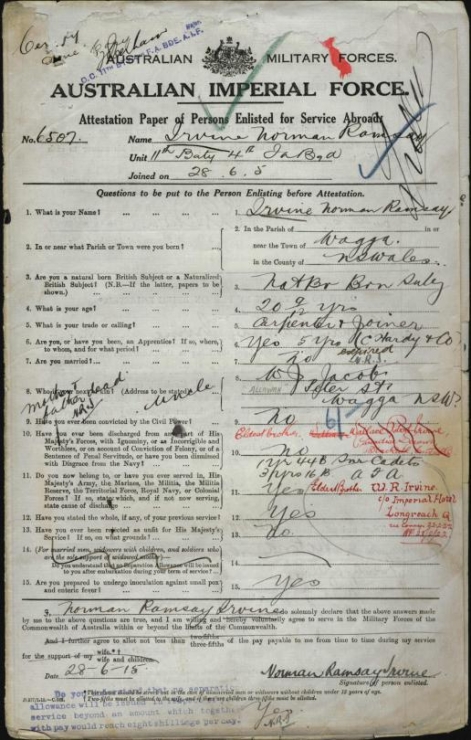 AUSTRALIAN MILITARY FORCES.
AUSTRALIAN IMPERIAL FORCE.
Attestation Paper of Persons Enlisted for Service Abroad.
No. 6507. Name Irvine Norman Ramsay
Unit 11th Baty 4th Fa Bgd
Joined on 28.6.5
Questions to be put to the Person Enlisting before Attestation.
1. What is your Name? 1. Irvine Norman Ramsay
2. In or near what Parish or Town were you born? 2. In the Parish of in or
near the Town of Wagga.
in the County of NSWales.
3. Are you a natural born British Subject or a Naturalized
British Subject? (N.B.—If the latter, papers to be
shown.) 3.
4. What is your age? 4. 20 yrs
5. What is your trade or calling? 5. Carpenter & Joiner
6. Are you, or have you been, an Apprentice? If so, where,
to whom, and for what period? 6. Yes 5 yrs McHardy & Co
expired
7. Are you married? 7. no
8. Who is your next of kin? (Address to be stated) 8. W J Jacobs
uncle
mother & father dead
Peter St
Wagga NSW.
9. Have you ever been convicted by the Civil Power? 9. no
Eldest brother
10. Have you ever been discharged from any part of His
Majesty's Forces, with Ignominy, or as Incorrigible and
Worthless, or on account of Conviction of Felony, or of a
Sentence of Penal Servitude, or have you been dismissed
with Disgrace from the Navy? 10. no
11. Do you now belong to, or have you ever served in, His
Majesty's Army, the Marines, the Militia, the Militia
Reserve, the Territorial Force, Royal Navy, or Colonial
Forces? If so, state which, and if not now serving,
state cause of discharge 11. 1 yr 44B Snr Cadets
3 yrs 16 B A F A
12. Have you stated the whole, if any, of your previous service? 12. Yes
Elder Brother W. R. Irvine
c/o Imperial Hotel
Longreach Q
13. Have you ever been rejected as unfit for His Majesty's
Service? If so, on what grounds 13. no.
14. (For married men, widowers with children, and soldiers who
are the sole support of widowed mother)—
Do you understand that no Separation Allowance will be issued
to you after embarkation during your term of service? 14.
15. Are you prepared to undergo inoculation against small pox
and enteric fever? 15. Yes
I, Norman Ramsay Irvine do solemnly declare that the above answers made
by me to the above questions are true, and I am willing and hereby voluntarily agree to serve in the Military Forces of the
Commonwealth of Australia within or beyond the limits of the Commonwealth.
And I further agree to allot not less than two-fifths
three-fifths of the pay payable to me from time to time during my service
for the support of my wife.*
wife and children.
Date 28-6-15
Norman Ramsay Irvine
Signature of person enlisted.
allowance will be issued in
service beyond an amount which together
with pay would reach eight shillings per day.
Yes